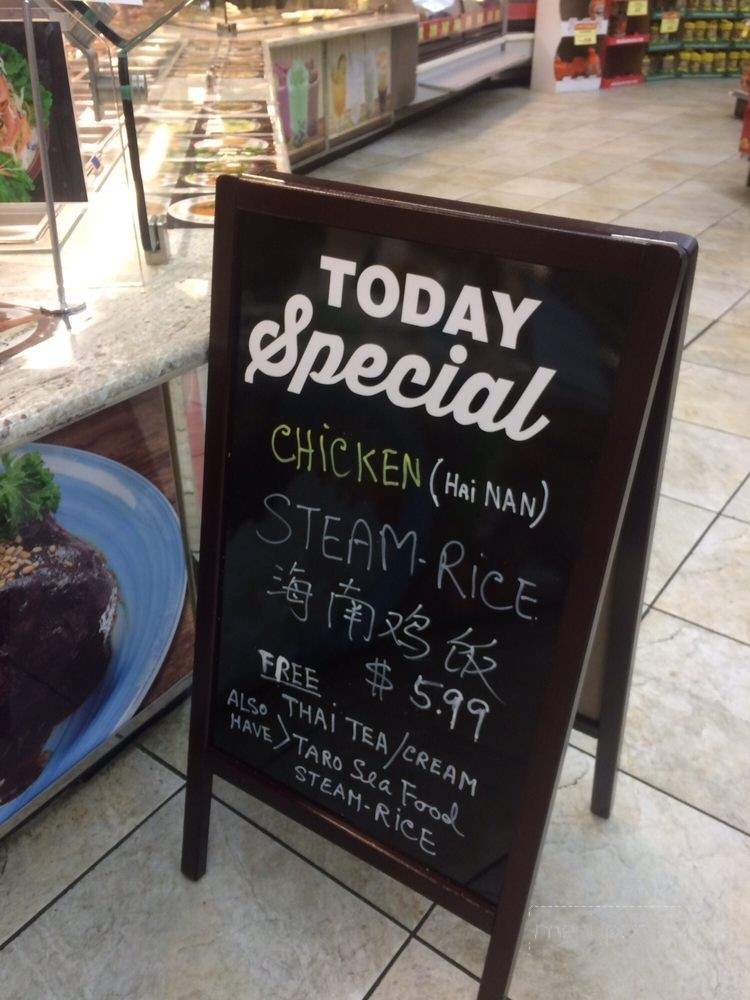 TODAY
Special
CHiCKEN (HAi NAN)
STEAM-RiCE
海南鸡饭
FREE $ 5.99
THAi TEA/CREAM
ALSO HAVE > TARO Sea Food
STEAM-RiCE